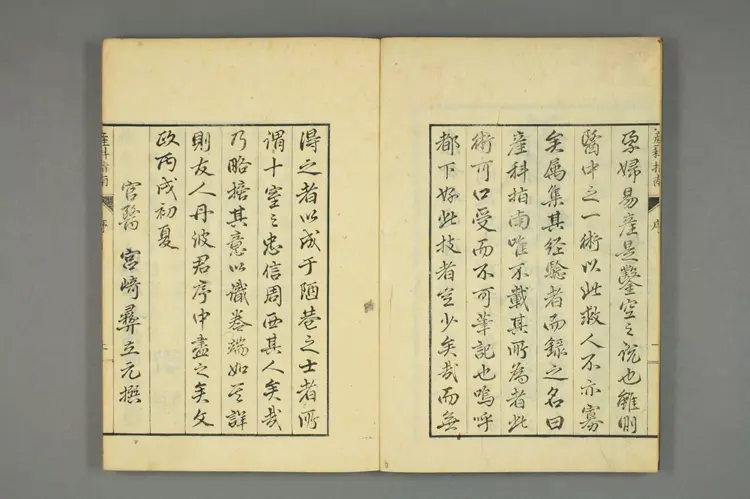 孕婦易產是鑿空之説也雖則
醫中之一術以此救人不亦寡
矣屬集其経驗者而録之名曰
產科指南唯不載其所為者此
術可口受而不可筆記也嗚呼
都下好此技者豈少矣哉而無
產科指南
序
得之者以成于陋巷之士者所
謂十室之忠信周西其人矣哉
乃略掂其意以識卷端如其詳
則友人丹波君序中盡之矣文
政丙戌初夏
官醫 宮崎彝立元撰
產科指南
序
二